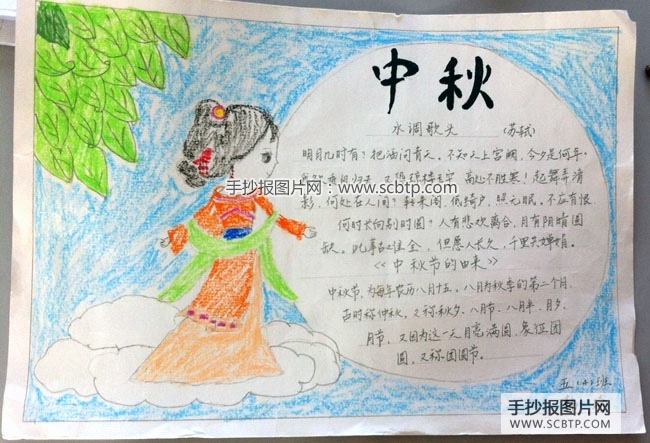 中秋
水调歌头 (苏轼)
明月几时有?把酒问青天。不知天上宫阙,今夕是何年。
手抄报图片网:www.scbtp.com
我欲乘风归去,又恐琼楼玉宇,高处不胜寒!起舞弄清
影,何处在人间?转朱阁,低绮户,照无眠。不应有恨
何时长向别时圆?人有悲欢离合,月有阴晴圆
缺。此事古难全,但愿人长久,千里共婵娟。
《中秋节的由来》
中秋节,为每年农历八月十五。八月为秋季的第二个月,
古时称仲秋,又称秋夕、八月节、八月半、月夕、
月节,又因为这一天月亮满圆,象征团
圆,又称团圆节。
五(4)班
手抄报图片网
WWW.SCBTP.COM